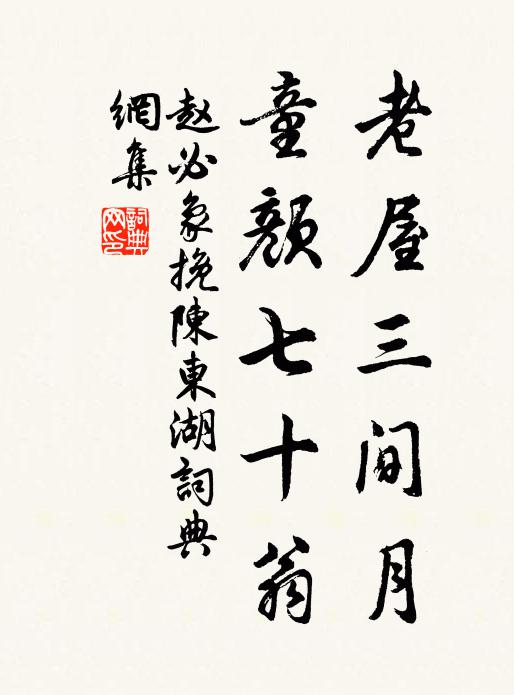 老屋三间月
童顏七十翁
赵必象挽陳東湖詞典
網集
詞典網印